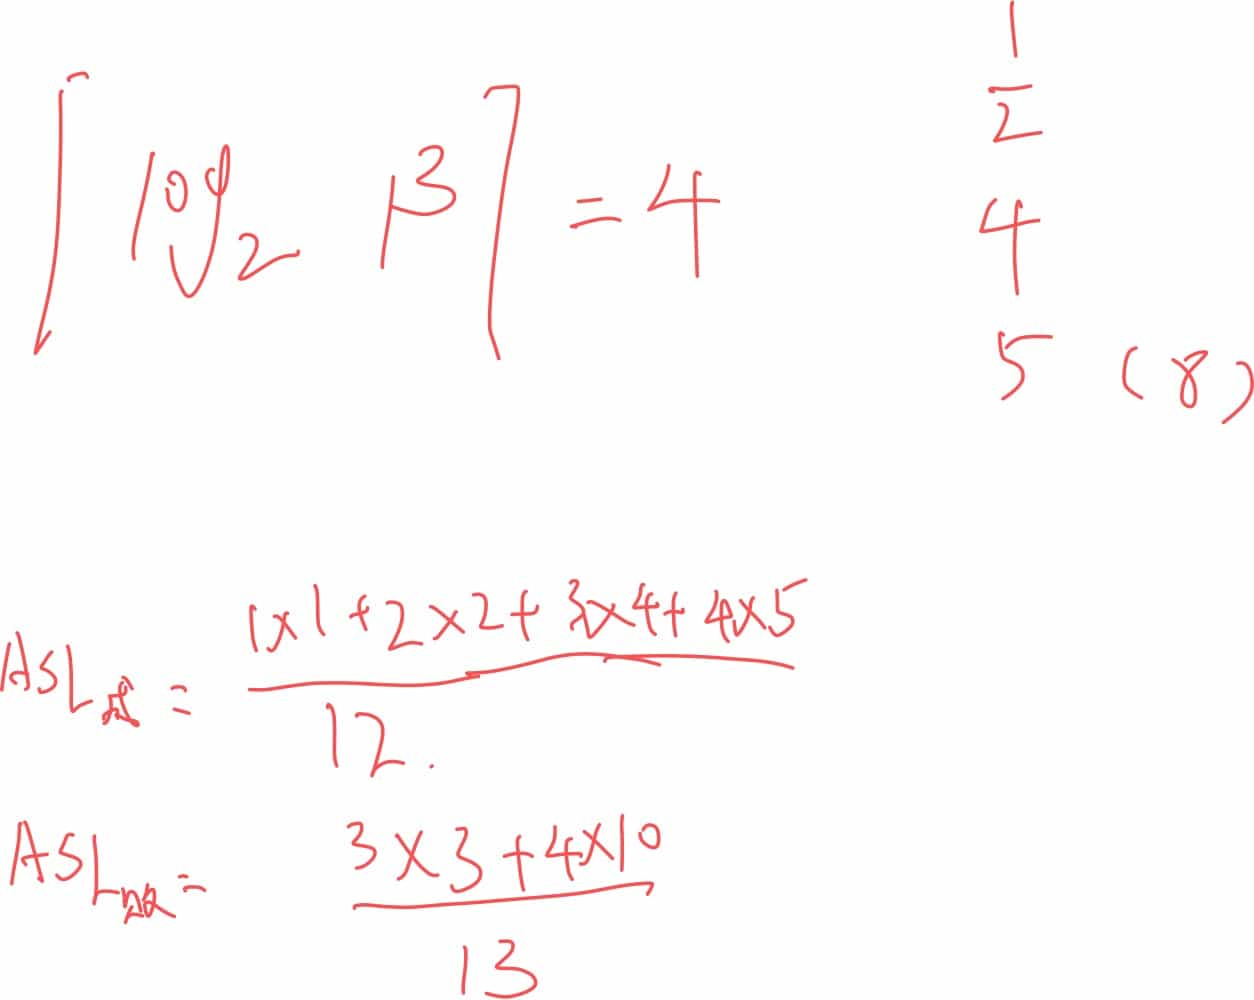 ⌈log₂ 13⌉ = 4
1
2
4
5 (8)
ASL成 = 1×1+2×2+3×4+4×5 / 12.
ASL = 3×3+4×10 / 13